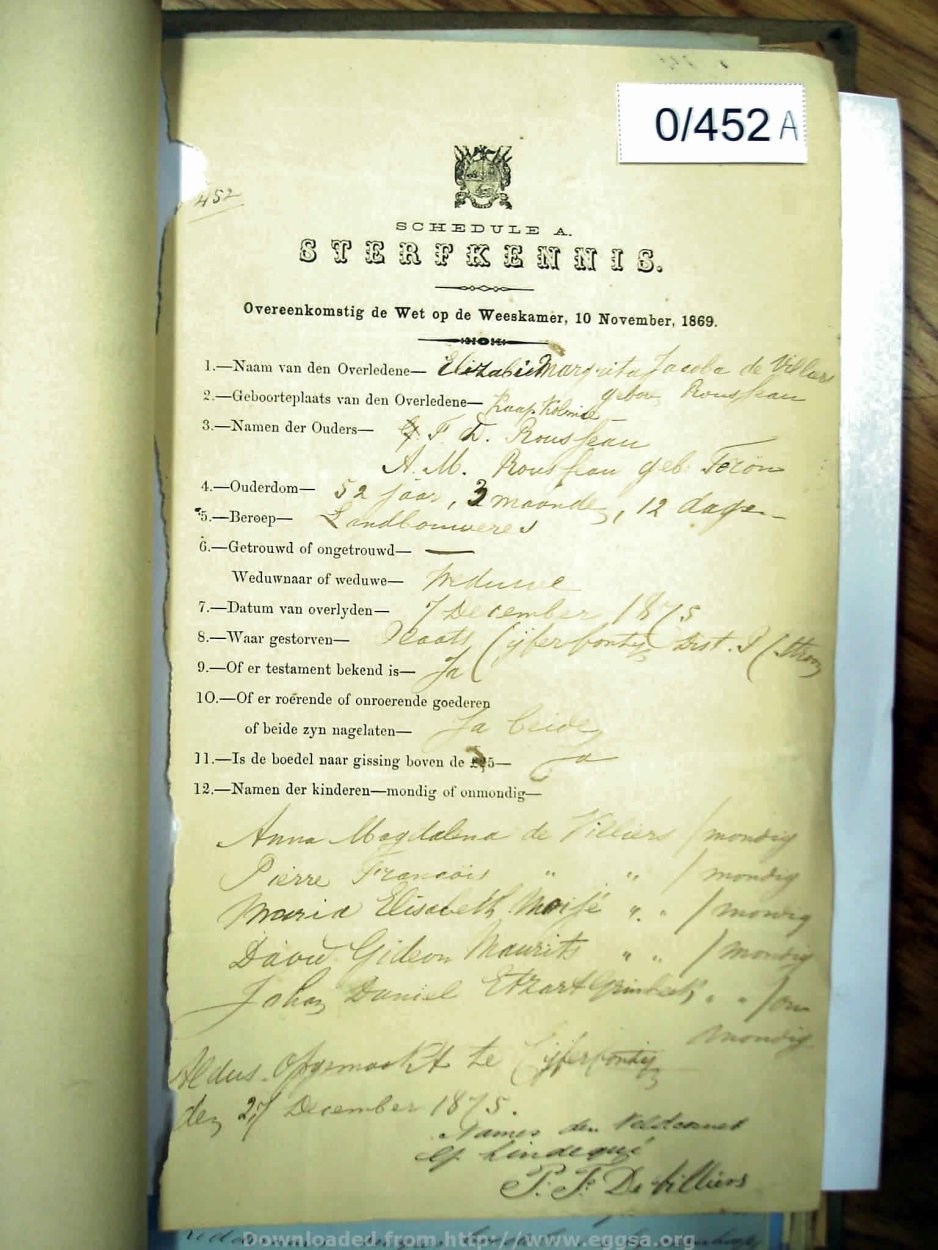 0/452 A
452
SCHEDULE A.
STERFKENNIS.
Overeenkomstig de Wet op de Weeskamer, 10 November, 1869.
1.—Naam van den Overledene— Margrita Jacoba de Villiers
gebor. Rousseau
2.—Geboorteplaats van den Overledene— Kaap Kolonie
3.—Namen der Ouders— Rousseau
A. M. Rousseau geb. Feron
4.—Ouderdom— 52 jaar, 3 maanden, 12 dage
5.—Beroep— Landbouweres
6.—Getrouwd of ongetrouwd— —
Weduwnaar of weduwe— Weduwe
7.—Datum van overlyden— 7 December 1875
8.—Waar gestorven— Plaats Cijferfontijn Dist. P/Stroom
9.—Of er testament bekend is— Ja
10.—Of er roerende of onroerende goederen
of beide zyn nagelaten— Ja beide
11.—Is de boedel naar gissing boven de £25— Ja
12.—Namen der kinderen—mondig of onmondig—
Anna Magdalena de Villiers / mondig
Pierre Francois " " / mondig
Maria Elisabeth " " / mondig
David Gideon Maurits " " / mondig
Johan Daniel " " / on
mondig
Aldus Opgemaakt te Cijferfontijn
den 27 December 1875.
Namens den Veldcornet
Lindequé
P. F. De Villiers
Downloaded from http://www.eggsa.org